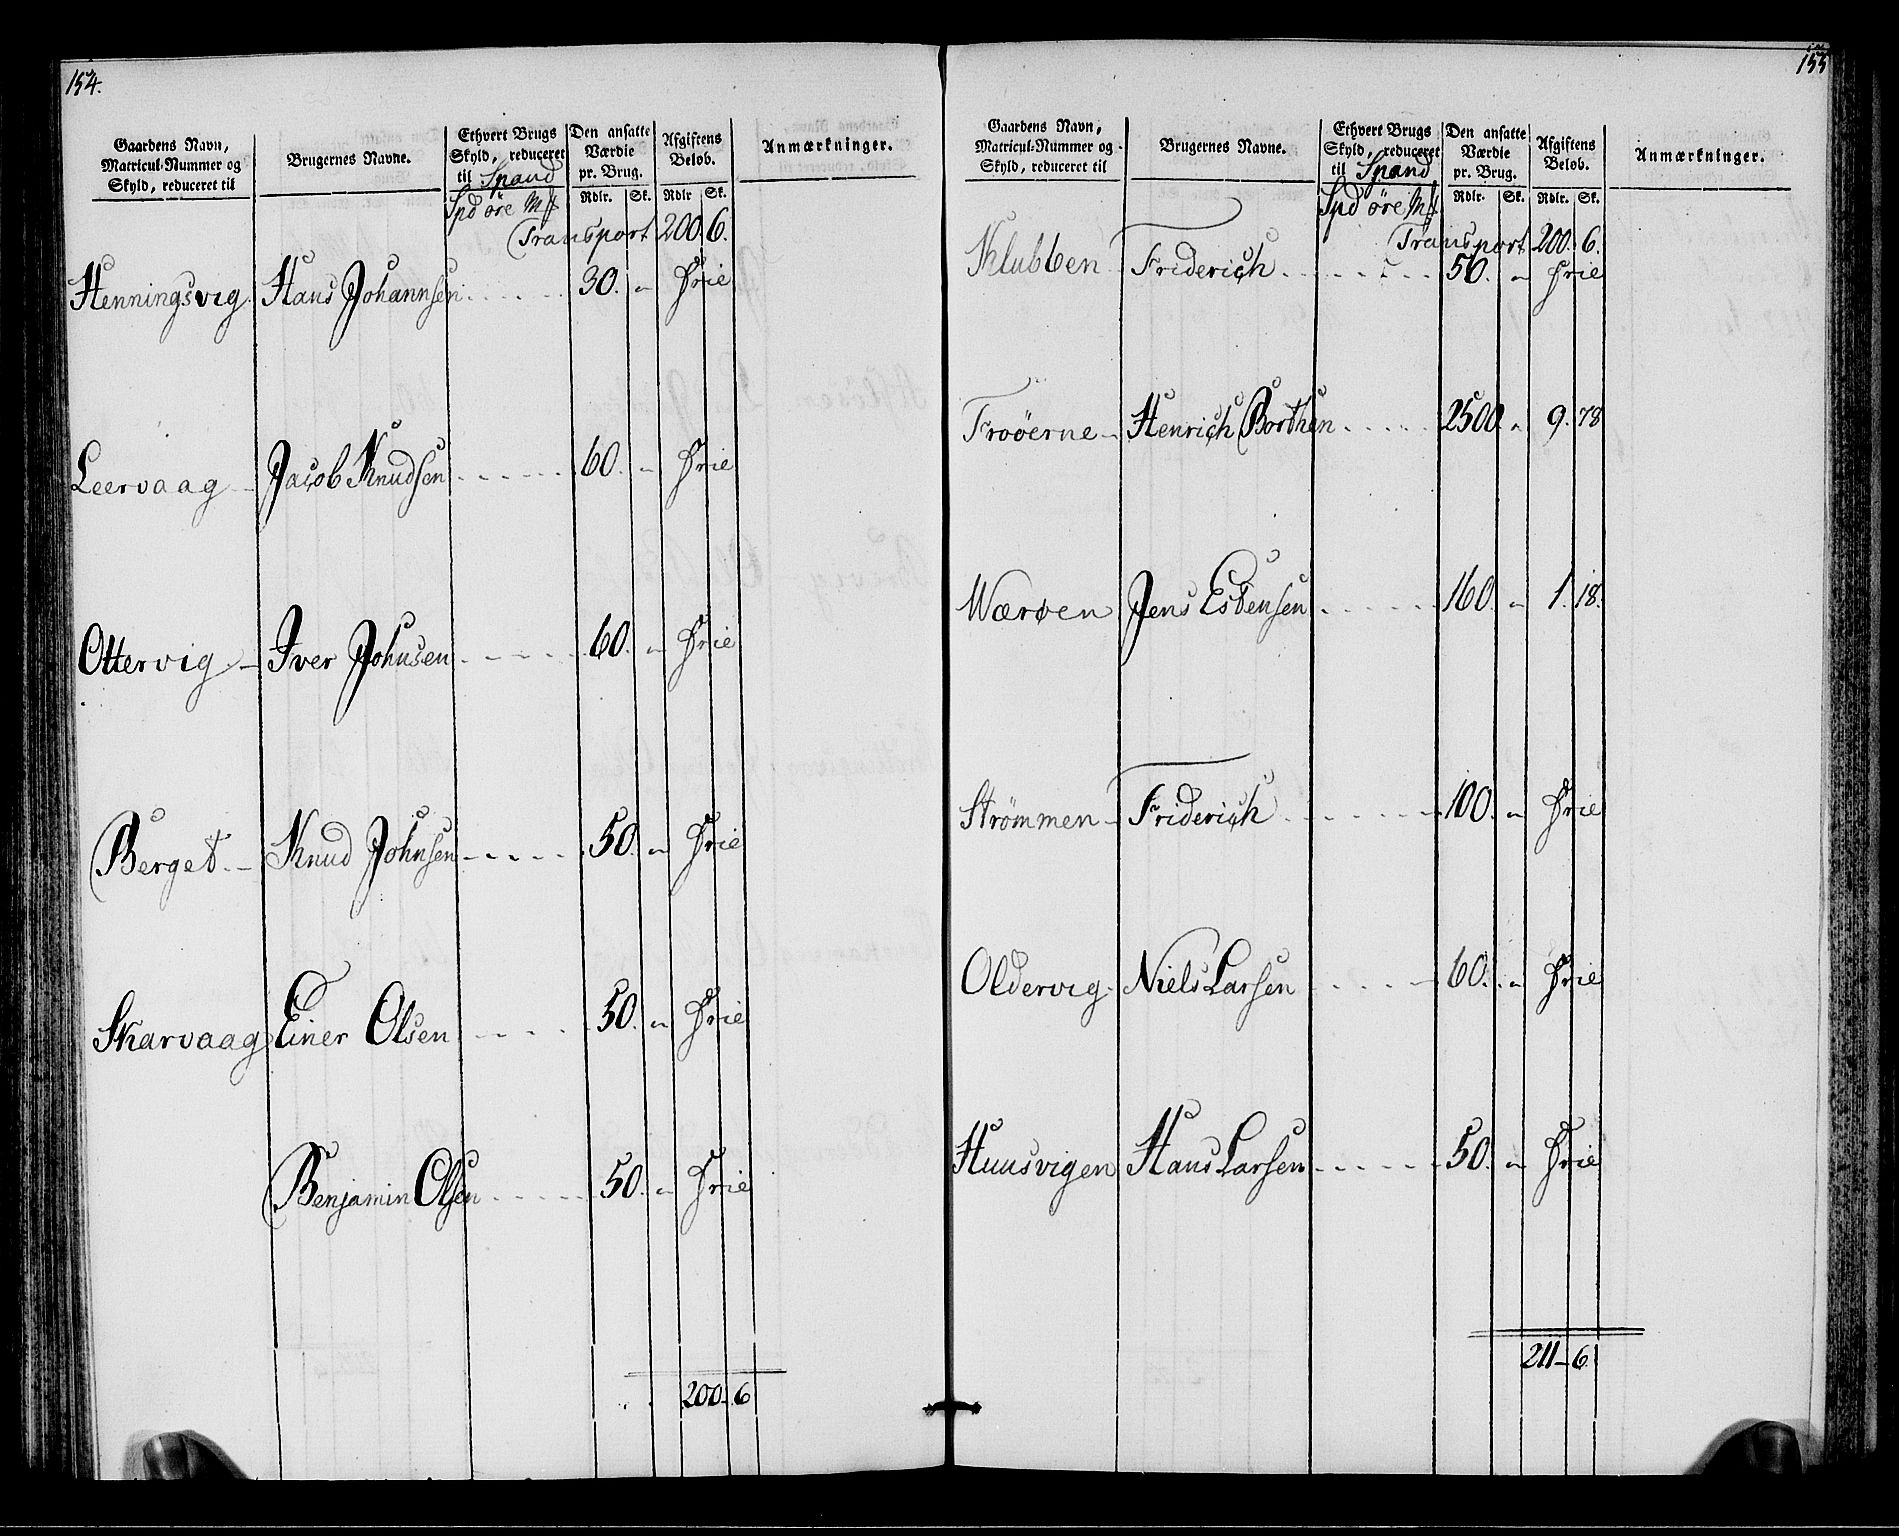 154.
Gaardens Navn, Matricul-Nummer og Skyld, reduceret til
Brugernes Navne.
Ethvert Brugs Skyld, reduceret til Spand
Den ansatte Værdie pr. Brug.
Afgiftens Beløb.
Anmærkninger.
Spd øre Mk Rdlr. Sk. Rdlr Sk.
Transport 200. 6.
Henningsvig. Hans Johannsen 30. " Frie
Leervaag Jacob Knudsen 60. " Frie
Ottervig Iver Johnsen 60. " Frie
Berget. Knud Johnsen 50. " Frie
Skarvaag Einer Olsen 50. " Frie
Benjamin Olsen 50. " Frie
200. 6
155
Gaardens Navn, Matricul-Nummer og Skyld, reduceret til
Brugernes Navne.
Ethvert Brugs Skyld, reduceret til Spand
Den ansatte Værdie pr. Brug.
Afgiftens Beløb.
Anmærkninger.
Spd øre Mk Rdlr. Sk. Rdlr. Sk.
Transport 200. 6.
Klubben Friderich 50. " Frie
Froöerne Henrich Borthen 2500. " 9. 78
Wærøen Jens Esbensen 160. " 1. 18.
Strømmen Friderich 100. " Frie
Oldervig Niels Larsen 60. " Frie
Huusvigen Hans Larsen 50. " Frie
211 6